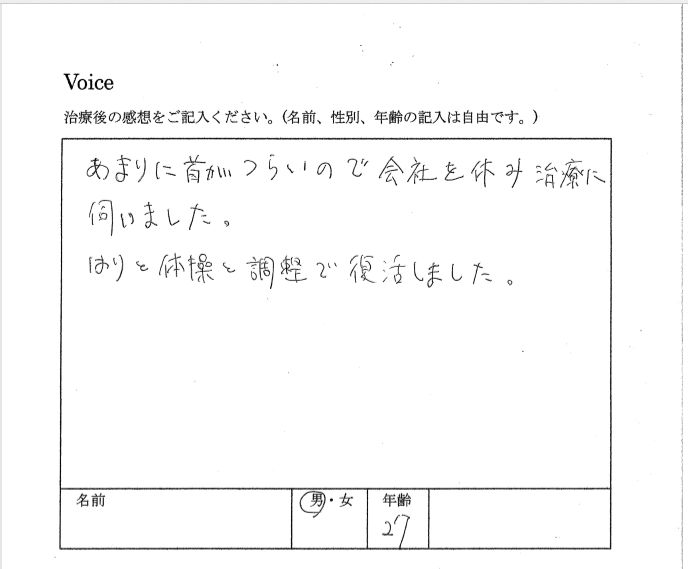 Voice
治療後の感想をご記入ください。(名前、性別、年齢の記入は自由です。)
あまりに首がつらいので会社を休み治療に
伺いました。
はりと体操と調整で復活しました。
名前
男・女
年齢
27